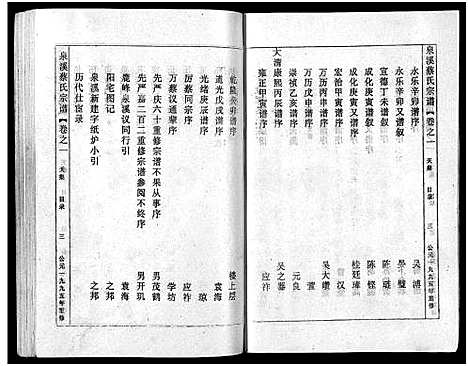 泉溪蔡氏宗谱【卷之一 天集 目录 二 公元一九九五年重修
永乐辛卯谱序 吴溥
永乐辛卯又谱叙
宣德丁未谱叙 陈璲
成化庚寅谱序 陈铿
成化庚寅又谱序 桂廷璋
宏治甲寅谱序 汉
万历戊申谱序 萱
万历戊申又谱序 吴大缵
崇祯乙亥谱序 元良
大清康熙丙辰谱序 吴之器
雍正甲寅谱序 应祚
乾隆癸卯谱序 楼上层
道光戊戌谱序 袁海
光绪庚辰谱序 琼
万蔡汉通辈序 应祚
先严庆六十重修宗谱不果从事序 学坊
先严嘉二百二重修宗谱参阅不终序 男茂鹤
鹿峰泉溪议同行引 男开玑
阳宅图记 袁海
泉溪新建字纸炉小引 之邦
历代仕宦录 之邦
泉溪蔡氏宗谱【卷之一 天集 目录 三 公元一九九五年重修